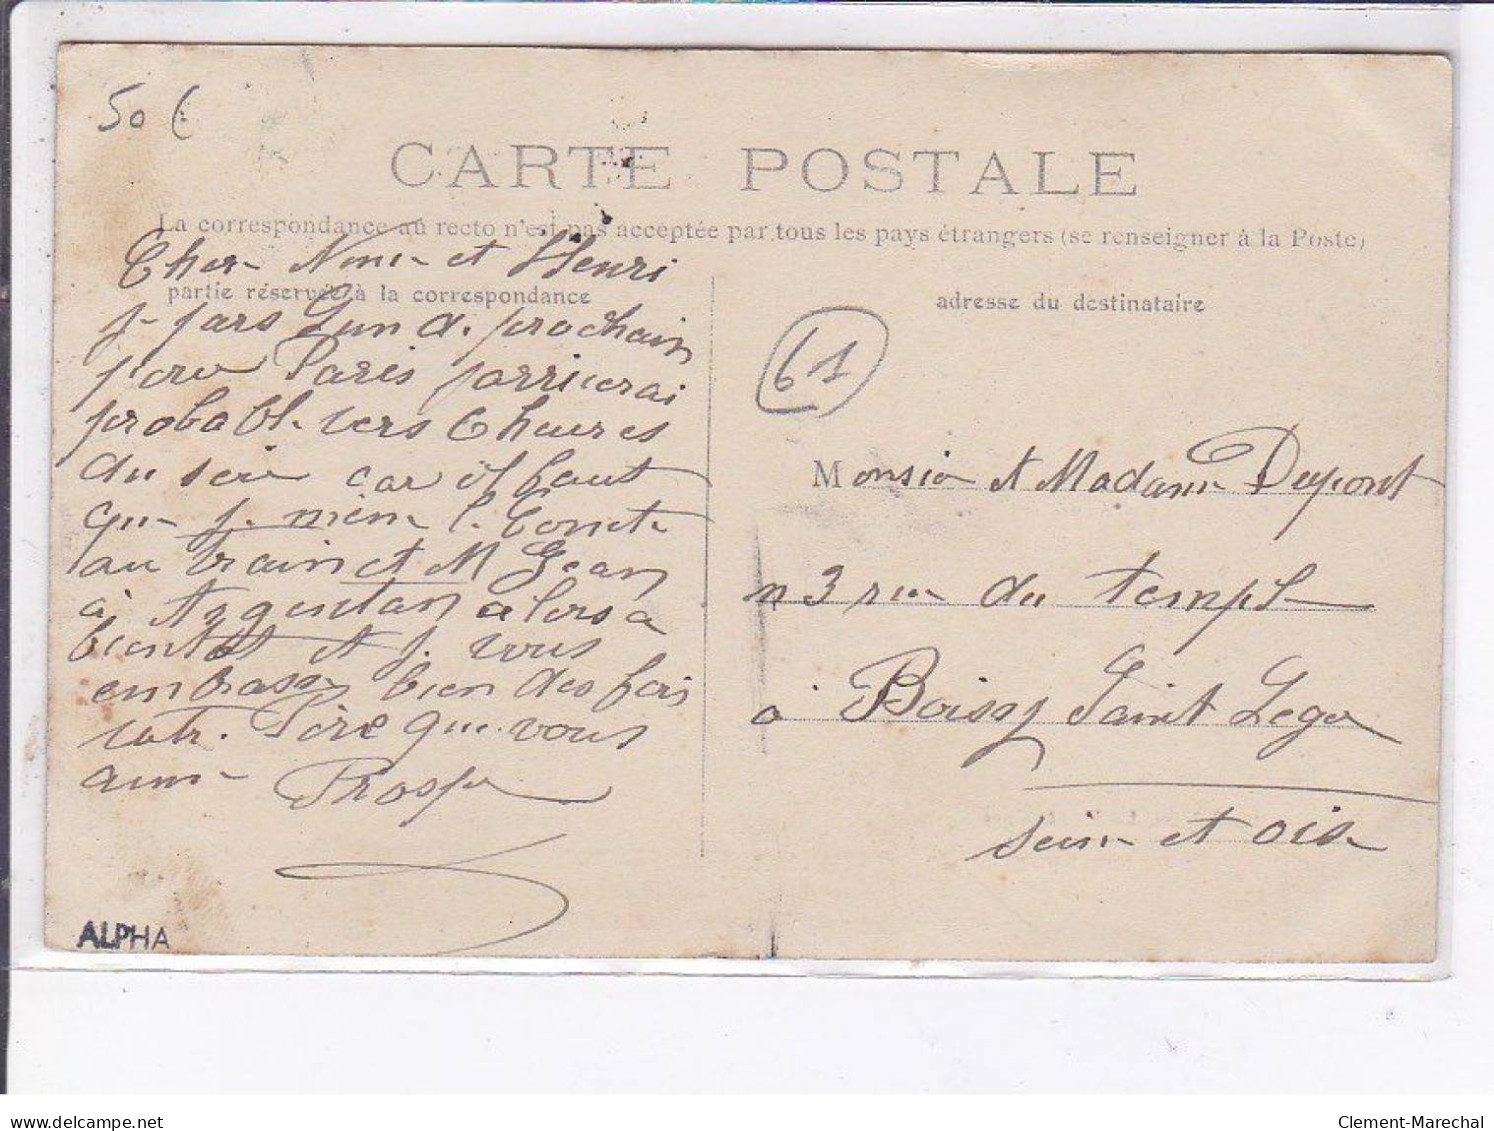 50 €
CARTE POSTALE
La correspondance au recto n'est pas acceptée par tous les pays étrangers (se renseigner à la Poste)
partie réservée à la correspondance
adresse du destinataire
61
Cher et Henri
j pars Lundi prochain
pour Paris jarriverai
probabl. vers 6 heures
du soir car il faut
que j. mème l.
au train et M Jean
à Argentan alors a
bientot et j. vous
embrasse bien des fois
votr. Père que vous
aime Prosper
Monsieur et Madame Dupont
n 3 rue du temple
à Boissy Saint Leger
seine et oise
ALPHA
delcampe.net
Clement-Marechal